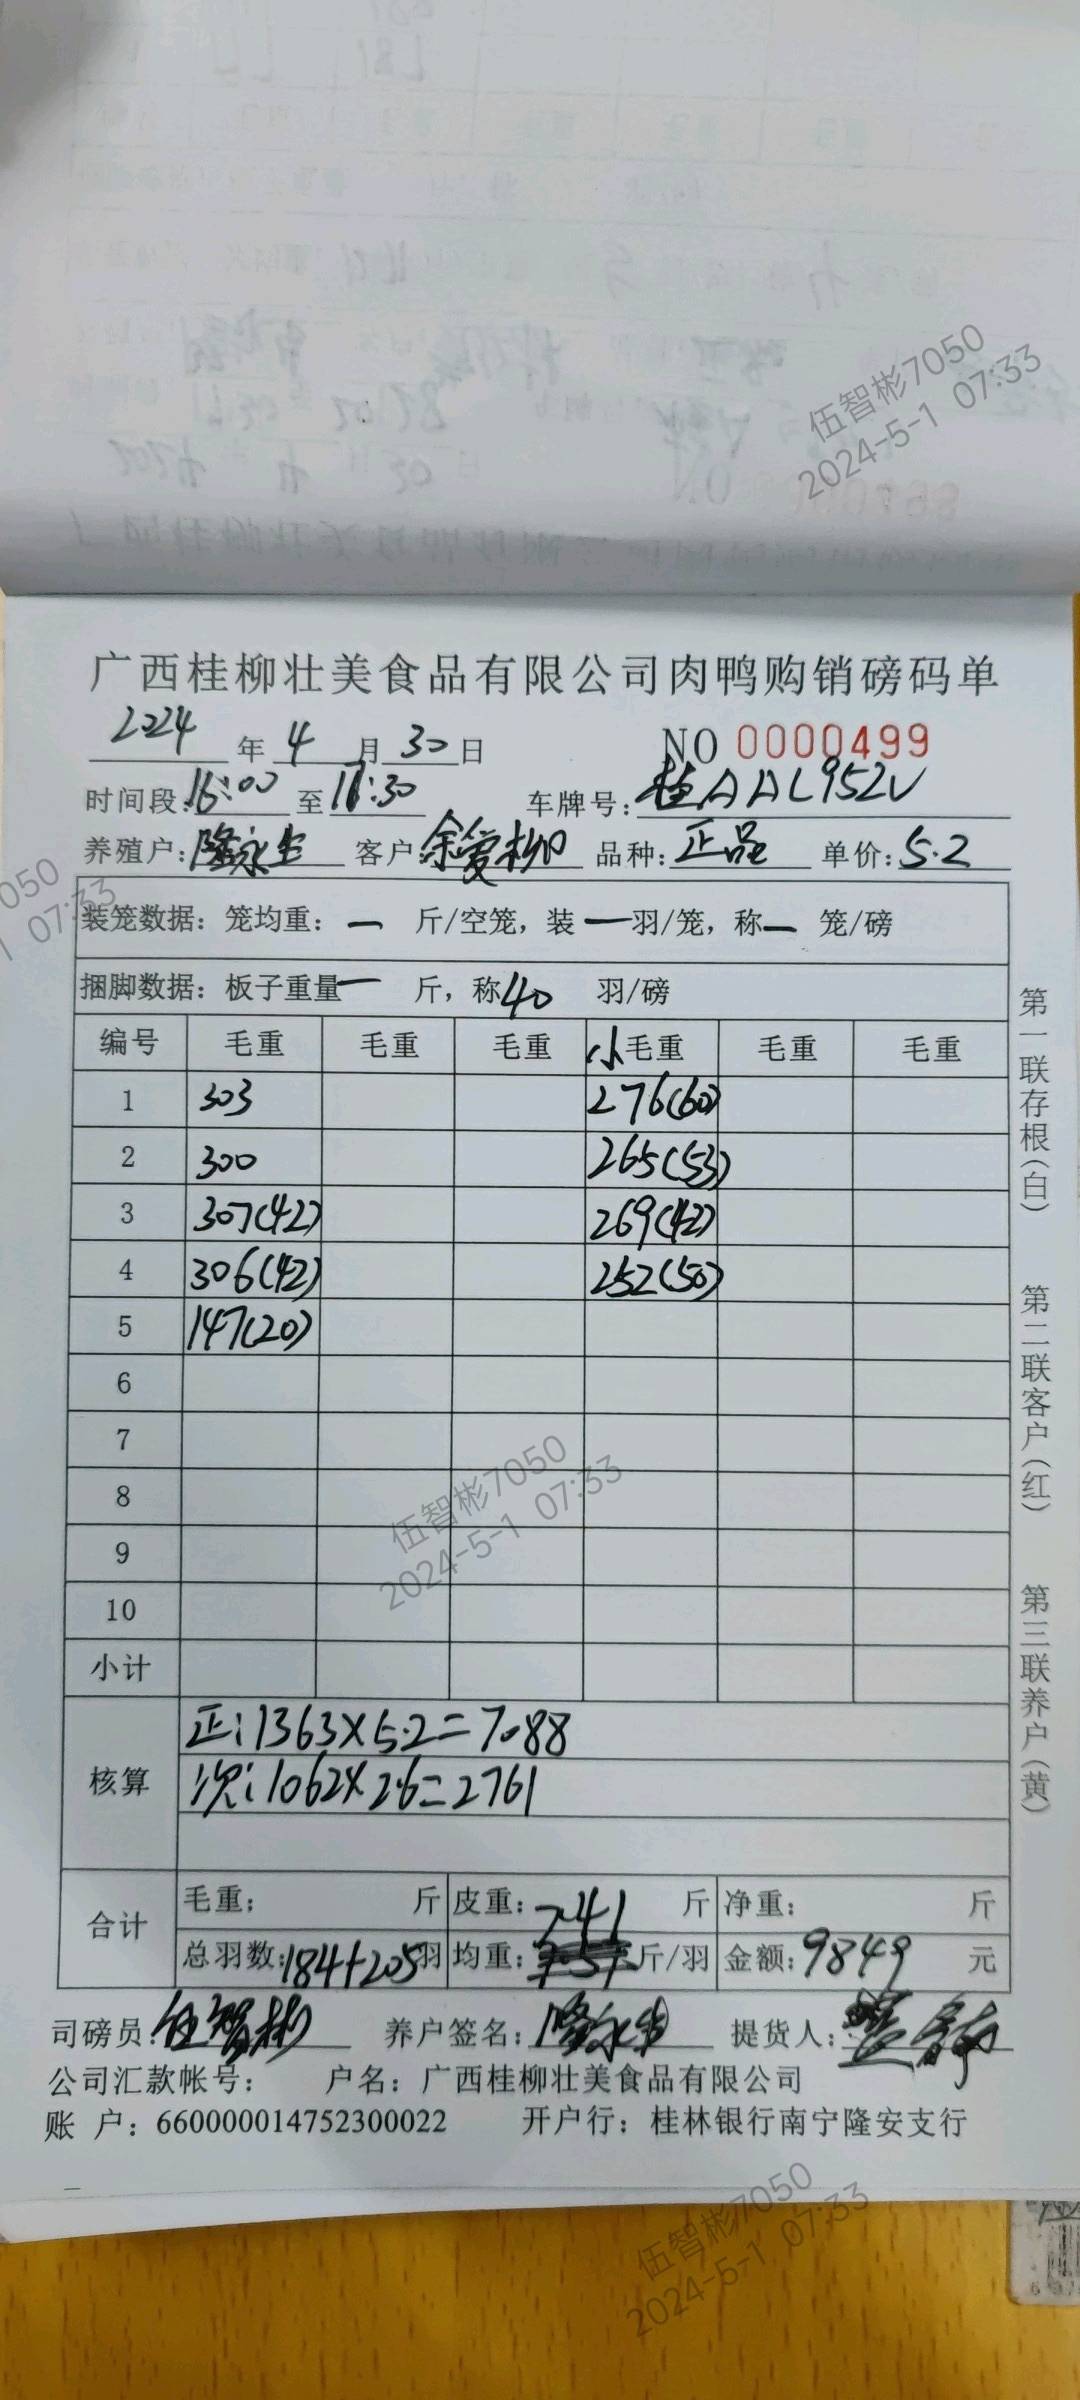 伍智彬7050
2024-5-1 07:33
广西桂柳壮美食品有限公司肉鸭购销磅码单
2024 年 4 月 30 日 NO 0000499
时间段:16:00 至 17:30 车牌号:桂AAL952V
养殖户:隆永生 客户:余爱柳 品种:正品 单价:5.2
装笼数据：笼均重：一 斤/空笼，装一羽/笼，称一 笼/磅
捆脚数据：板子重量一 斤，称40 羽/磅
编号 毛重 毛重 毛重 小毛重 毛重 毛重
1 303 276(60)
2 300 265(53)
3 307(42) 269(42)
4 306(42) 252(50)
5 147(20)
6
7
8
9
10
小计
核算 正:1363×5.2=7088
次:1062×2.6=2761
合计 毛重: 斤 皮重: 斤 净重: 斤
总羽数:184+205羽 均重:7.41 斤/羽 金额:9849 元
司磅员:伍智彬 养户签名:隆永生 提货人:
公司汇款帐号： 户名：广西桂柳壮美食品有限公司
账 户：660000014752300022 开户行：桂林银行南宁隆安支行
第一联存根(白)
第二联客户(红)
第三联养户(黄)
7050
07:33
伍智彬7050
2024-5-1 07:33
伍智彬7050
2024-5-1 07:33